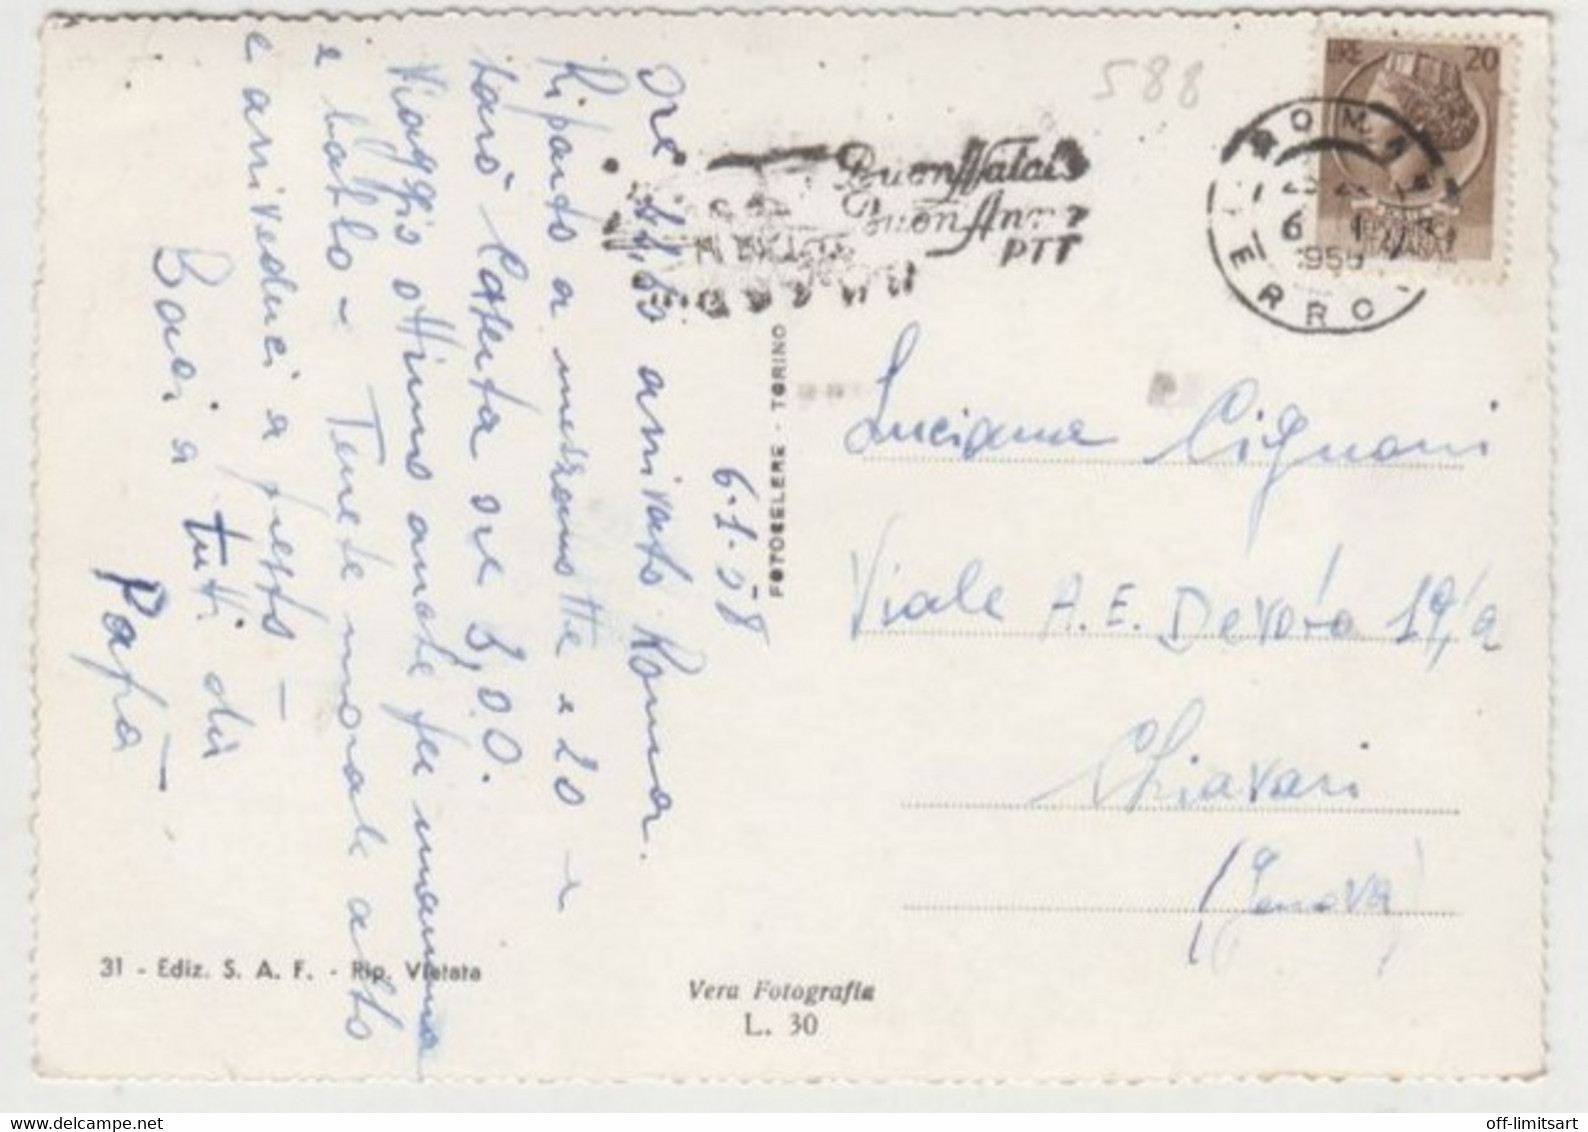 588
LIRE 20
ROMA
6 1
1958
FERRO
Buon Natale
Buon Anno
PTT
6.1.58
Ore arrivato Roma.
Riparto a mezzanotte e 20 -
ore 3,00.
Viaggio ottimo anche per mamma
e babbo - Tenete morale alto
e arrivederci a presto -
Baci a tutti dù
Papà -
FOTOCELERE - TORINO
Luciana Cignoni
Viale A. E. Devoto 19/a
Chiavari
(Genova)
31 - Ediz. S. A. F. - Rip. Vietata
Vera Fotografia
L. 30
off-limitsart